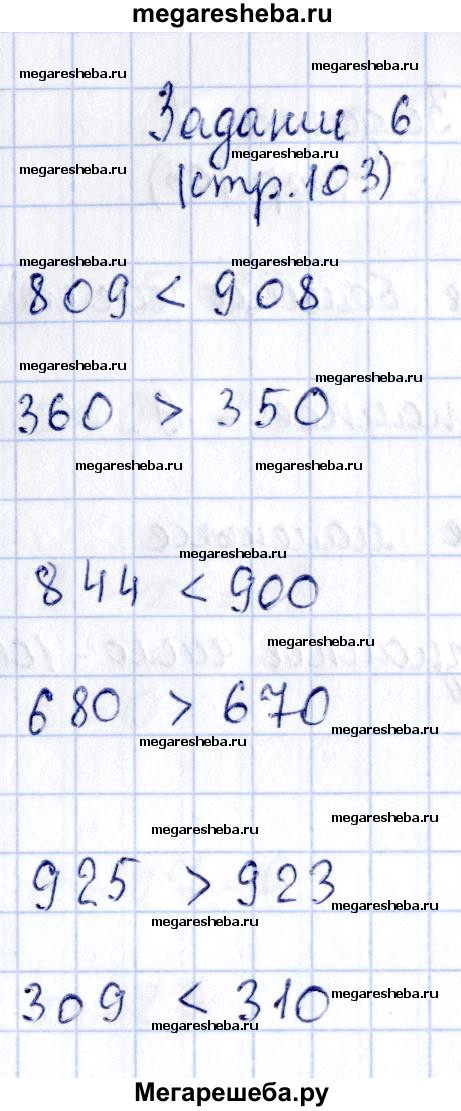 megaresheba.ru
megaresheba.ru
megaresheba.ru
Задание 6
megaresheba.ru
megaresheba.ru
(стр.103)
megaresheba.ru
megaresheba.ru
809 < 908
megaresheba.ru
megaresheba.ru
360 > 350
megaresheba.ru
megaresheba.ru
megaresheba.ru
844 < 900
megaresheba.ru
680 > 670
megaresheba.ru
megaresheba.ru
megaresheba.ru
megaresheba.ru
925 > 923
megaresheba.ru
megaresheba.ru
309 < 310
megaresheba.ru
megaresheba.ru
Мегарешеба.ру